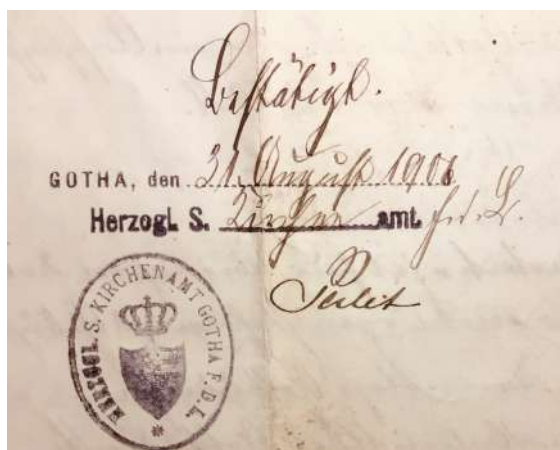 Bestätigt.
GOTHA, den 31. August 1908
Herzogl. S. Kirchen amt. f. d. L.
HERZOGL. S. KIRCHENAMT GOTHA F. D. L.